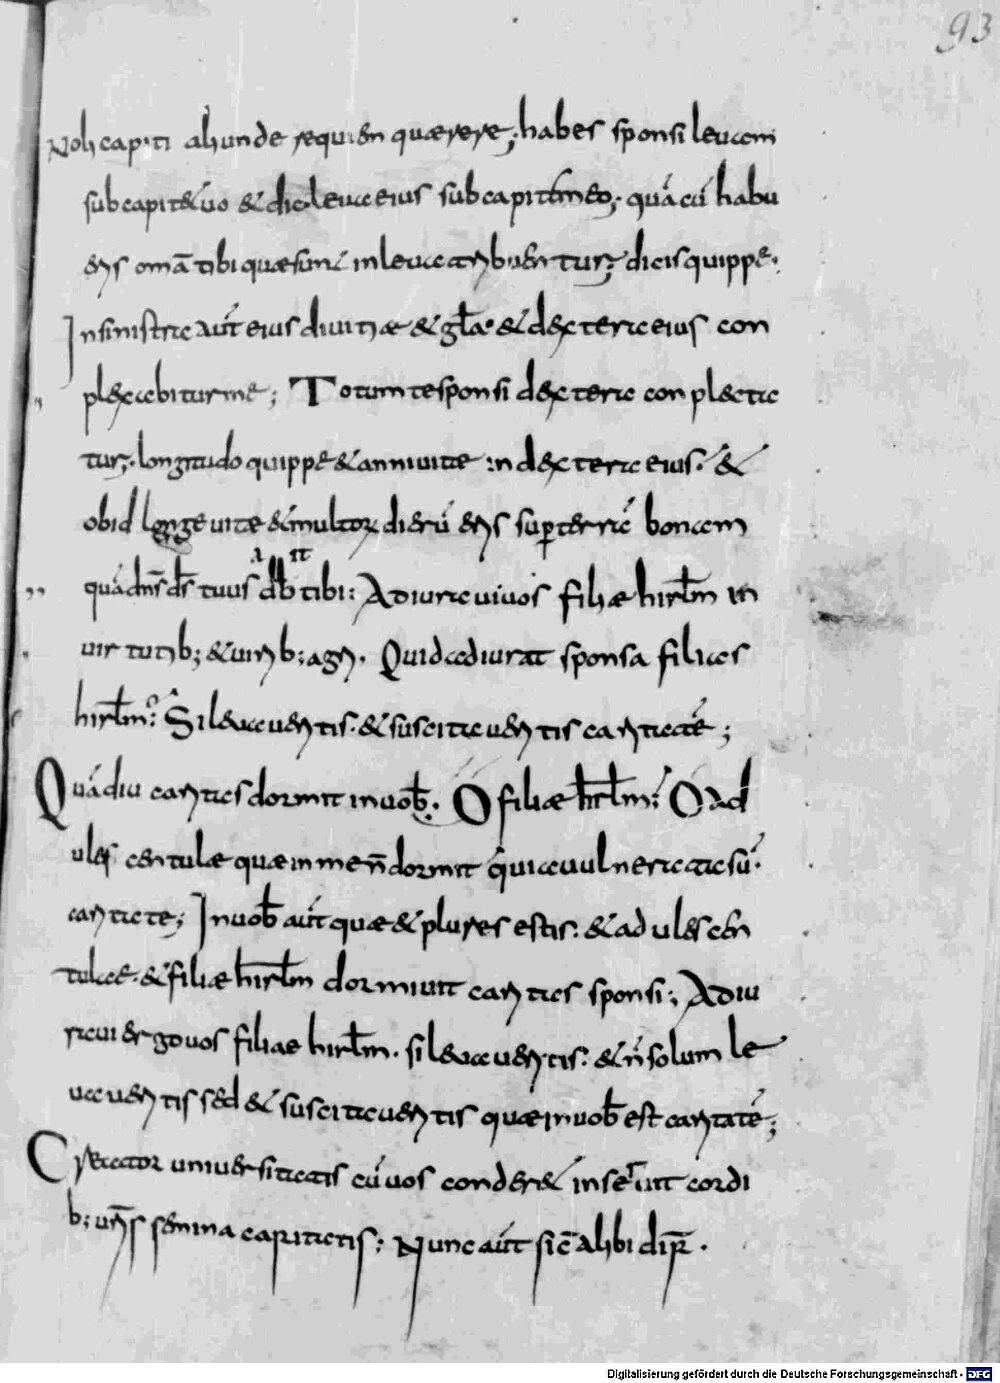 93
Noli capiti aliunde requiem quærere; habes sponsi leuam
sub capite tuo & dic leua eius sub capite meo; quā cū habu
eris om̄a tibi quæ sunt in leua tribuentur; dicis quippe.
In sinistra aūt eius diuitiæ & gl̄a & dextera eius con
plexabitur me; Totum te sponsi dextera conplecta
tur; longitudo quippe & anni uitæ in dextera eius. &
ob id longe uitæ & multoꝝ dierū eris sup̱ terrā bonam
quā dn̄s ds̄ tuus dab̄it tibi: Adiuraui uos filiæ hirl̄m in
uirtutib; & uirib; agri. Quid adiurat sponsa filias
hirl̄m: Si leuaueritis. & suscitaueritis caritatē;
Quādiu caritas dormit in uob̄. O filiæ hirl̄m: O ad
ulescentulæ quæ in me ñ dormit quia uulnerata sū
caritate; In uob̄ aūt quæ & plures estis. & adulescen
tulæ. & filiæ hirl̄m dormiuit caritas sponsi; Adiu
raui ergo uos filiae hirl̄m. si leuaueritis. & ñ solum le
uaueritis sed & suscitaueritis quæ in uob̄ est caritatē;
Creator uniuersitatis cū uos conderet inseruit cordi
b; ur̄is semina caritatis; Nunc aūt sic̄ alibi dr̄.
Digitalisierung gefördert durch die Deutsche Forschungsgemeinschaft - DFG